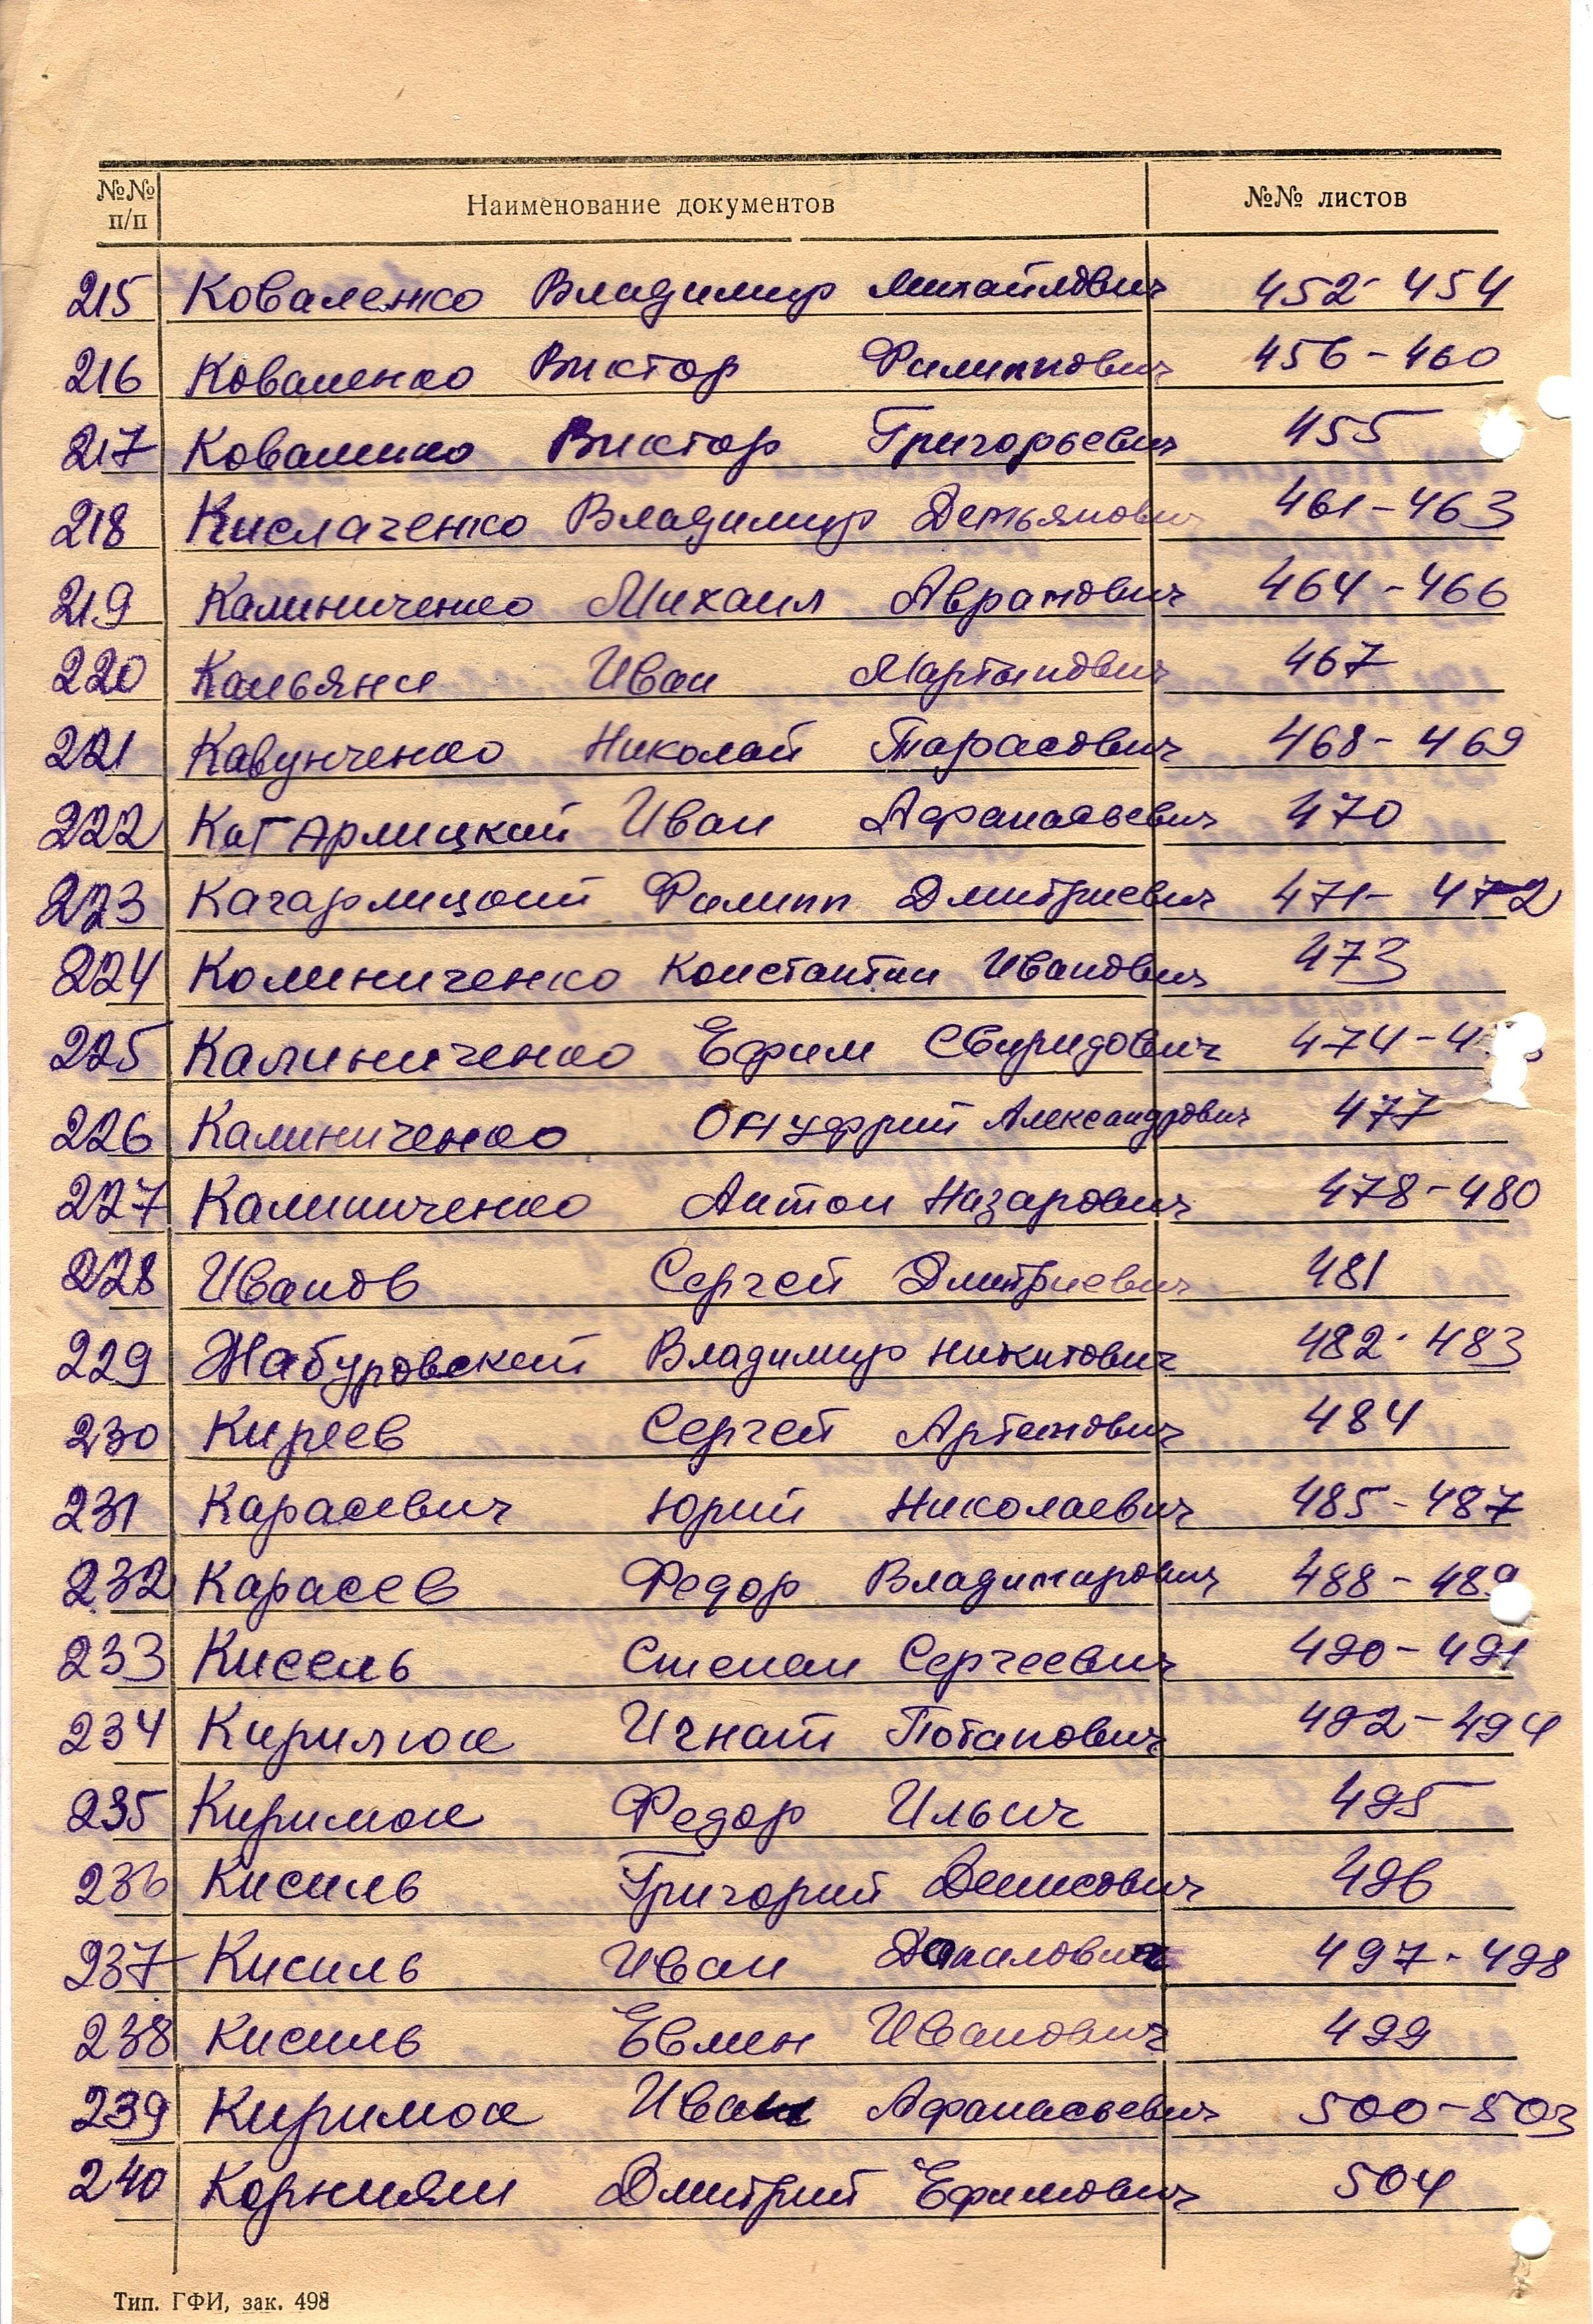 №№ п/п Наименование документов №№ листов
215 Коваленко Владимир Михайлович 452-454
216 Коваленко Виктор Филиппович 456-460
217 Коваленко Виктор Григорьевич 455
218 Кислаченко Владимир Демьянович 461-463
219 Калиниченко Михаил Аврамович 464-466
220 Касьян Иван Мартынович 467
221 Кавунченко Николай Тарасович 468-469
222 Кагарлицкий Иван Афанасьевич 470
223 Кагарлицкий Филипп Дмитриевич 471-472
224 Колиниченко Константин Иванович 473
225 Калиниченко Ефим Свиридович 474-
226 Калиниченко Онуфрий Александрович 477
227 Калиниченко Антон Назарович 478-480
228 Иванов Сергей Дмитриевич 481
229 Жабуровский Владимир Никитович 482-483
230 Киреев Сергей Артемович 484
231 Карасевич Юрий Николаевич 485-487
232 Карасев Федор Владимирович 488-489
233 Кисель Степан Сергеевич 490-491
234 Кирилюк Игнат Потапович 492-494
235 Кирилюк Федор Ильич 495
236 Кисиль Григорий Денисович 496
237 Кисиль Иван Данилович 497-498
238 Кисиль Евмен Иванович 499
239 Кирилюк Иван Афанасьевич 500-503
240 Дмитрий Ефимович 504
Тип. ГФИ, зак. 498